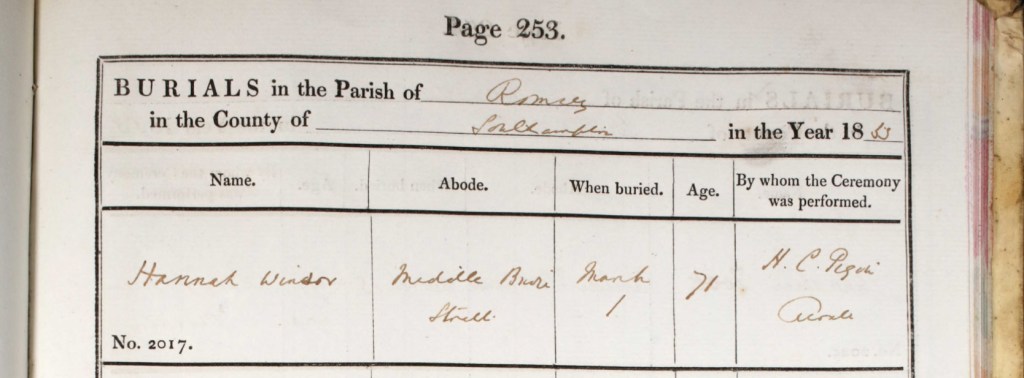 Page 253.
BURIALS in the Parish of Romsey
in the County of Southampton in the Year 1853
Name. Abode. When buried. Age. By whom the Ceremony was performed.
Hannah Windor Middle Bridge March 71 H. C. Pigou
Street 1 Curate
No. 2017.